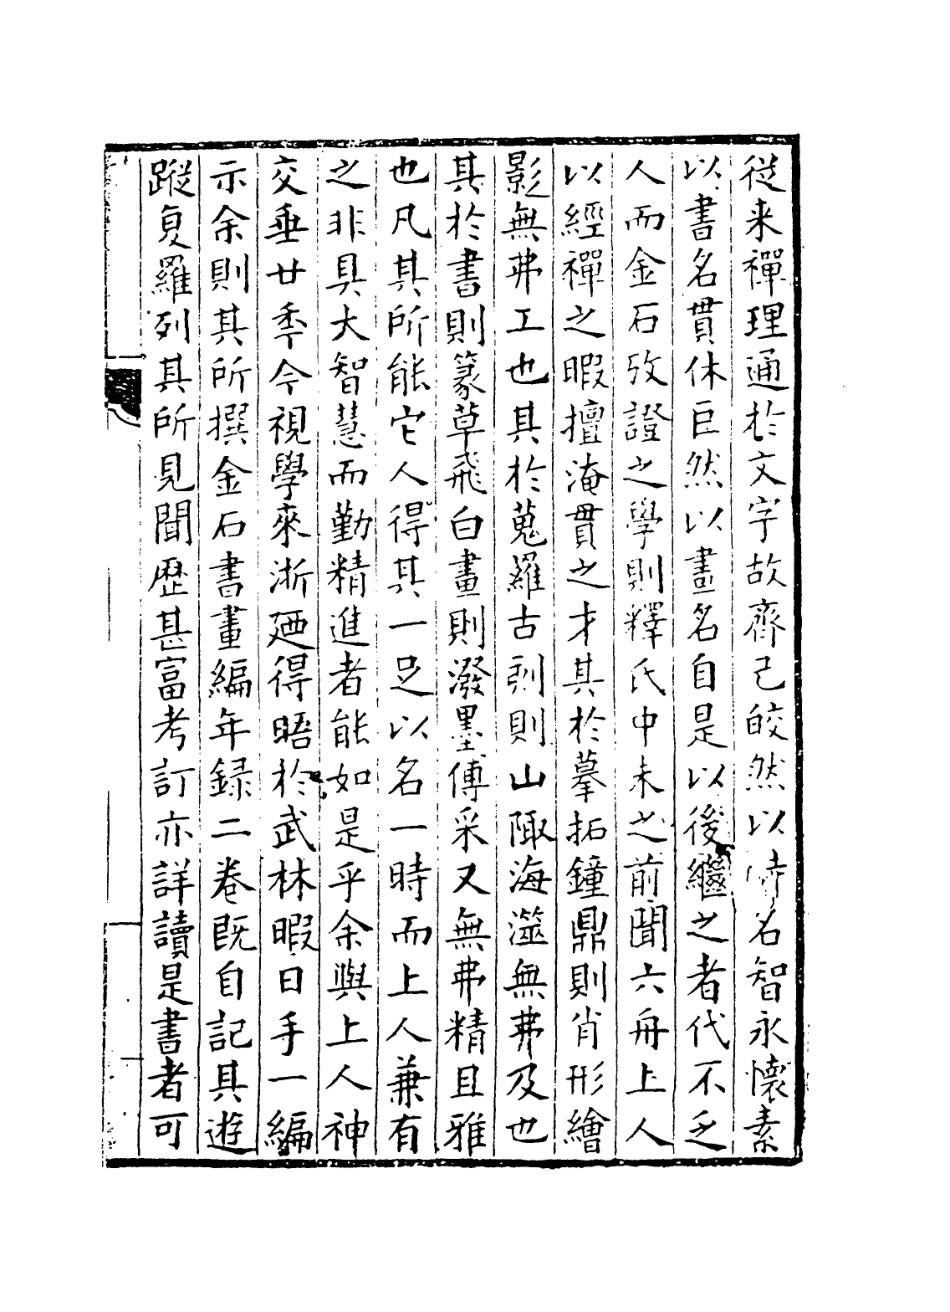 從来禪理通於文字故齊己皎然以詩名智永懷素
以書名貫休巨然以畫名自是以後繼之者代不乏
人而金石攷證之學則釋氏中未之前聞六舟上人
以經禪之暇擅淹貫之才其於摹拓鐘鼎則肖形繪
影無弗工也其於蒐羅古刻則山陬海澨無弗及也
其於書則篆草飛白畫則潑墨傅采又無弗精且雅
也凡其所能它人得其一足以名一時而上人兼有
之非具大智慧而勤精進者能如是乎余與上人神
交垂廿秊今視學來浙廼得晤於武林暇日手一編
示余則其所撰金石書畫編年録二卷既自記其遊
蹤复羅列其所見聞歷甚富考訂亦詳讀是書者可